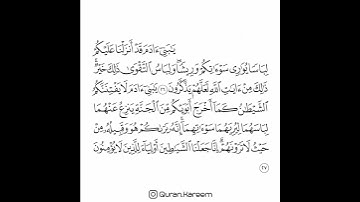 يَٰبَنِىٓ ءَادَمَ قَدْ أَنزَلْنَا عَلَيْكُمْ
لِبَاسًا يُوَٰرِى سَوْءَٰتِكُمْ وَرِيشًا وَلِبَاسُ ٱلتَّقْوَىٰ ذَٰلِكَ خَيْرٌ
ذَٰلِكَ مِنْ ءَايَٰتِ ٱللَّهِ لَعَلَّهُمْ يَذَّكَّرُونَ ٢٦ يَٰبَنِىٓ ءَادَمَ لَا يَفْتِنَنَّكُمُ
ٱلشَّيْطَٰنُ كَمَآ أَخْرَجَ أَبَوَيْكُم مِّنَ ٱلْجَنَّةِ يَنزِعُ عَنْهُمَا
لِبَاسَهُمَا لِيُرِيَهُمَا سَوْءَٰتِهِمَآ إِنَّهُۥ يَرَىٰكُمْ هُوَ وَقَبِيلُهُۥ مِنْ
حَيْثُ لَا تَرَوْنَهُمْ إِنَّا جَعَلْنَا ٱلشَّيَٰطِينَ أَوْلِيَآءَ لِلَّذِينَ لَا يُؤْمِنُونَ
٢٧
Quran.Kareem